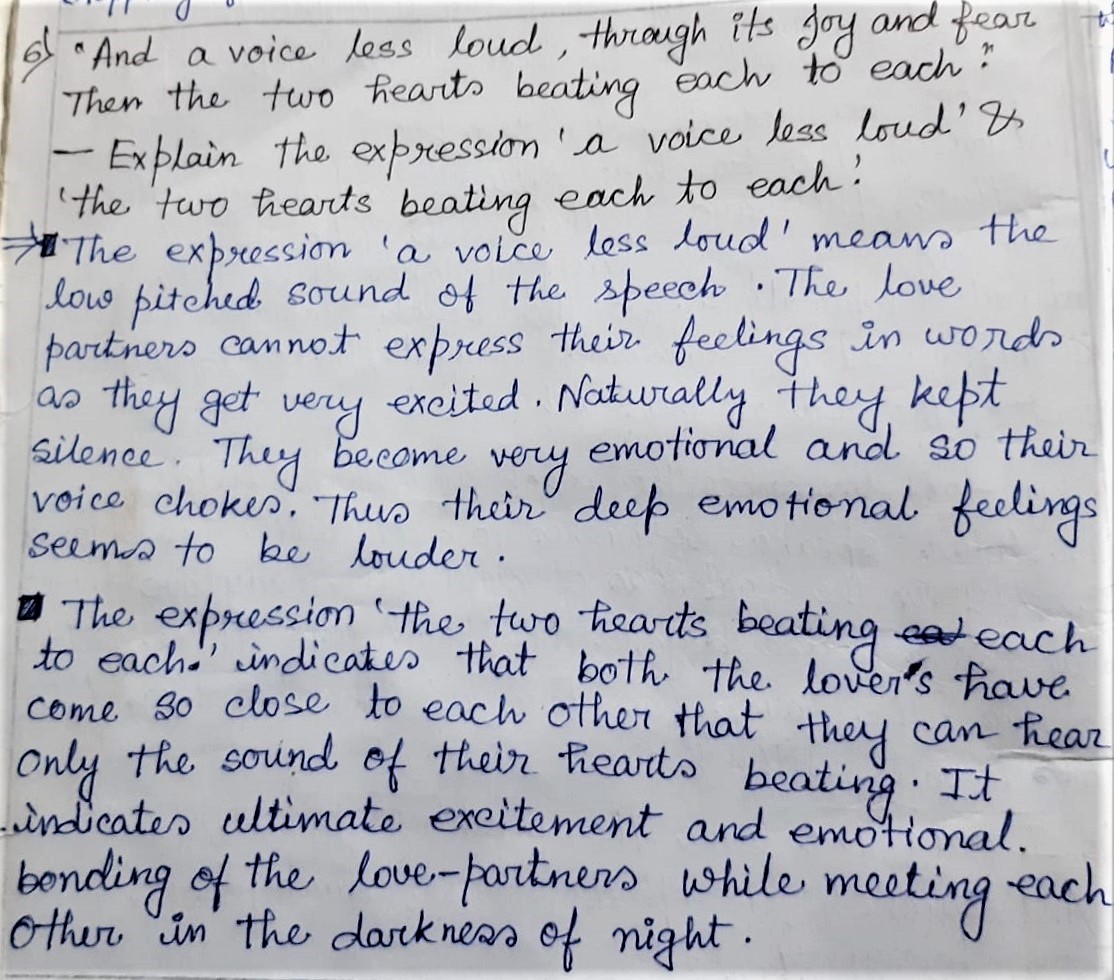 6) "And a voice less loud, through its joy and fear
Then the two hearts beating each to each."
— Explain the expression 'a voice less loud' &
'the two hearts beating each to each'.
⇒ The expression 'a voice less loud' means the
low pitched sound of the speech. The love
partners cannot express their feelings in words
as they get very excited. Naturally they kept
silence. They become very emotional and so their
voice chokes. Thus their deep emotional feelings
seems to be louder.
The expression 'the two hearts beating each
to each.' indicates that both the lover's have
come so close to each other that they can hear
only the sound of their hearts beating. It
indicates ultimate excitement and emotional.
bonding of the love-partners while meeting each
other in the darkness of night.